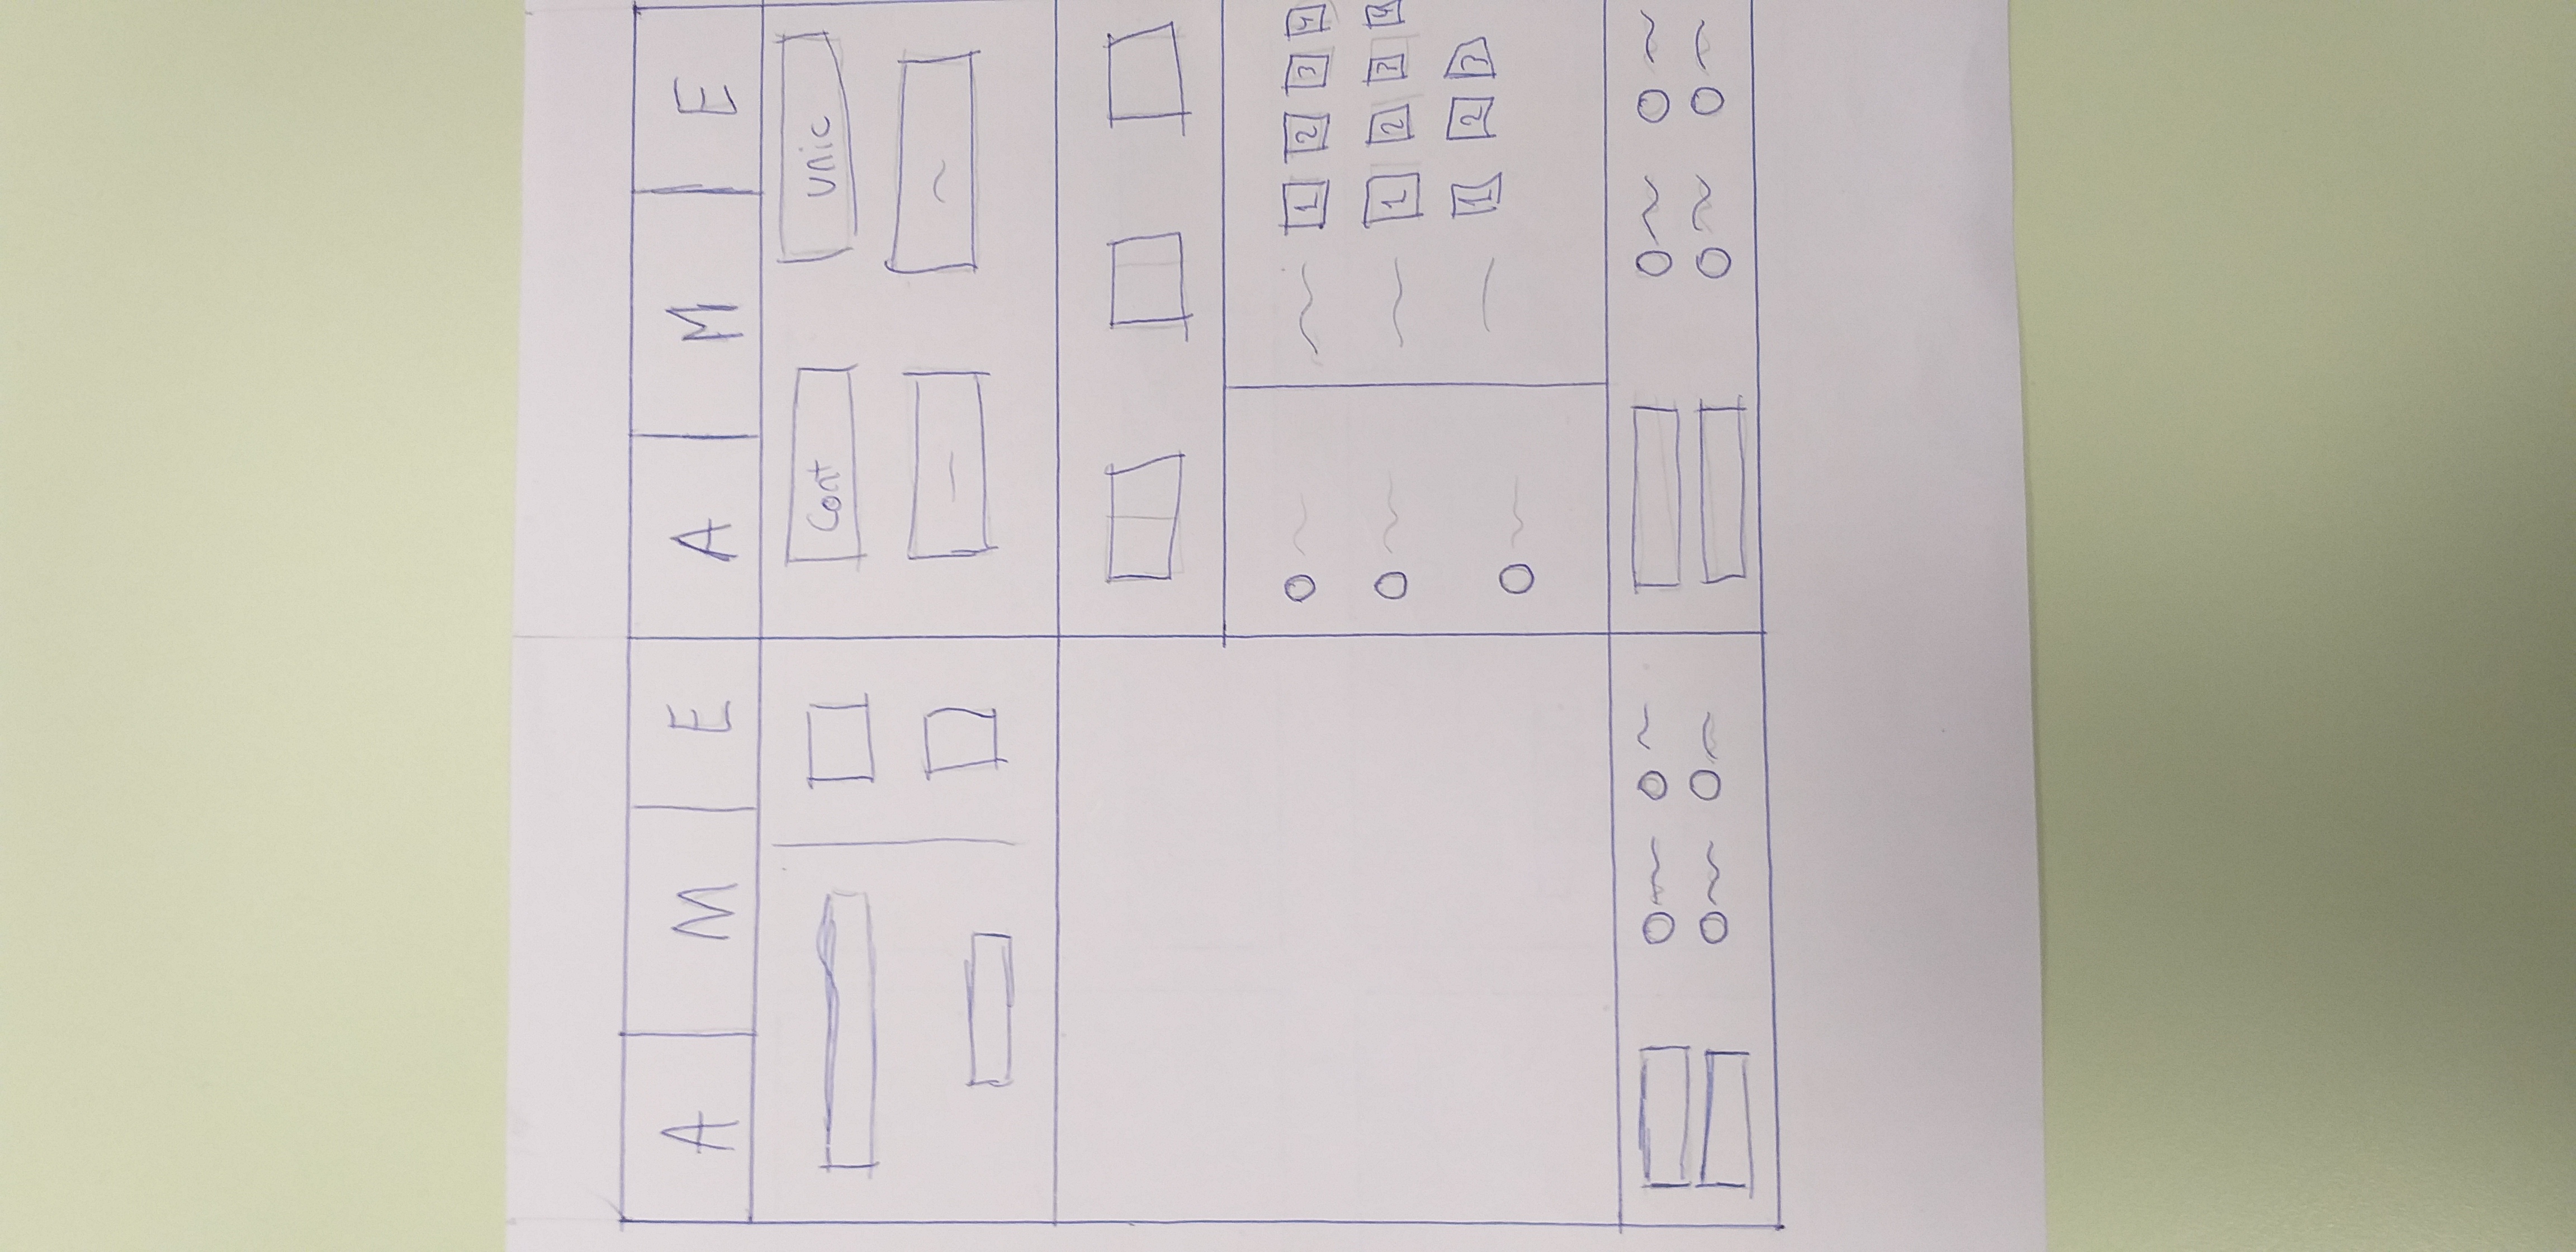 A M E A M E
Cont unic
1 2 3 4
1 2 3 4
1 2 3